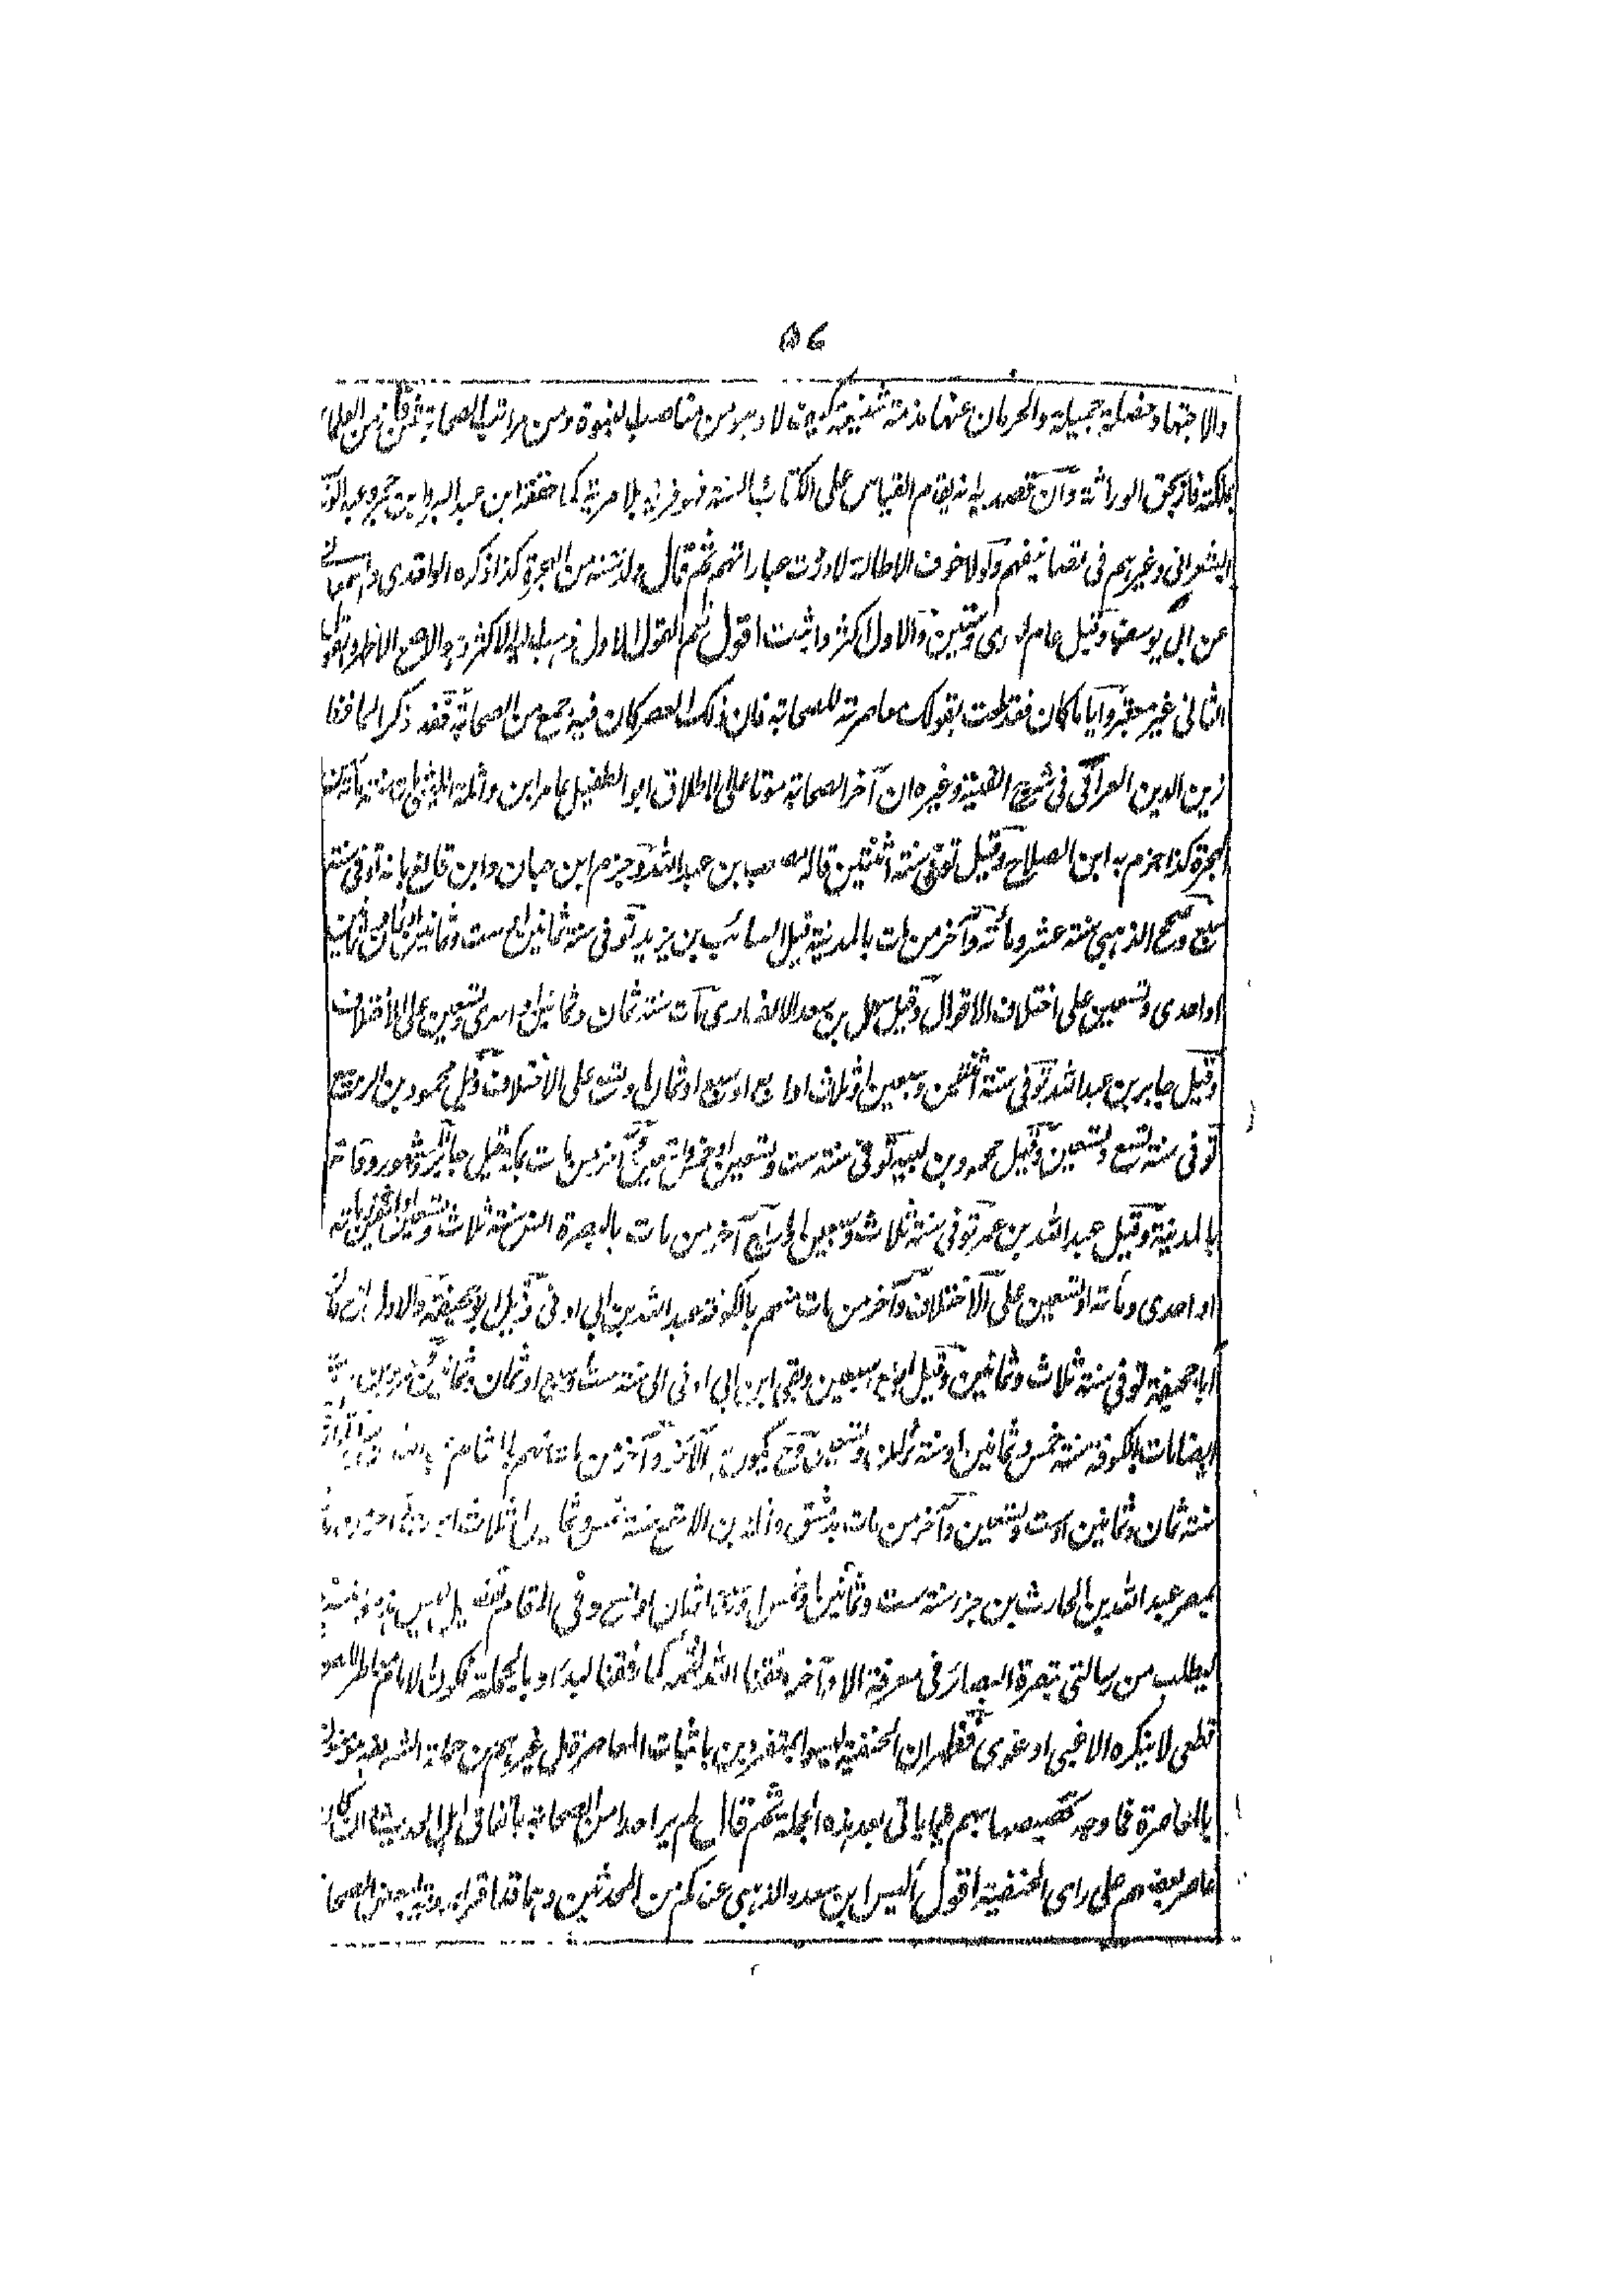 ۵۶
والاجتهاد خصلة جميلة والحرمان عنها مذمة شنيعة كيف لا وهو من مناصب النبوة ومن مراتب الصحابة فمن فاز من العلماء
بملكته فاز بحق الوراثة وان قصد به انه يقدم القياس على الكتاب والسنة فهو فرية بلا مرية كما حققه ابن عبد البر وابن حجر وعبد الوهاب
الشعرانى وغيرهم فى تصانيفهم ولولا خوف الاطالة لاوردت عباراتهم ثم قال ولد سنة من الهجرة كذا ذكره الواقدى والسمعانى
عن ابى يوسف وقيل عام احدى وستين والاول اكثر واثبت اقول نعم القول الاول ذهب اليه الاكثر وهو الاصح الاظهر والقول
الثانى غير معتبر وايا ما كان فقد ثبت بقولك معاصرته للصحابة فان ذلك العصر كان فيه جمع من الصحابة فقد ذكر الحافظ
زين الدين العراقى فى شرح الفيته وغيره ان آخر الصحابة موتا على الاطلاق ابو الطفيل عامر ابن واثلة الليثى مات سنة مائة من
الهجرة كذا جزم به ابن الصلاح وقيل توفى سنة اثنتين قاله مصعب بن عبد الله وجزم ابن حبان وابن قانع بانه توفى سنة
سبع وصحح الذهبى سنة عشر ومائة وآخر من مات بالمدينة قيل السائب بن يزيد توفى سنة ثمانين او ست وثمانين او ثمان وثمانين
او احدى وتسعين على اختلاف الاقوال وقيل سهل بن سعد الانصارى مات سنة ثمان وثمانين او احدى وتسعين على الاختلاف
وقيل جابر بن عبد الله توفى سنة اثنتين وسبعين او ثلاث او اربع او سبع او ثمان او تسع على الاختلاف وقيل محمود بن الربيع
توفى سنة تسع وتسعين وقيل محمود بن لبيد توفى سنة ست وتسعين او خمس وتسعين وآخر من مات بمكة قيل جابر والمشهور وفاته
بالمدينة وقيل عبد الله بن عمر توفى سنة ثلاث وسبعين او اربع وآخر من مات بالبصرة انس سنة ثلاث وتسعين او اثنتين او مائة
او احدى ومائة او تسعين على الاختلاف وآخر من مات منهم بالكوفة عبد الله بن ابى اوفى وقيل ابو جحيفة والاول اصح فان
ابا جحيفة توفى سنة ثلاث وثمانين وقيل اربع وسبعين وبقى ابن ابى اوفى الى سنة ست او سبع او ثمان وثمانين
ايضا مات بالكوفة سنة خمس وثمانين او سنة ثمان وتسعين وآخر من مات منهم بالشام
سنة ثمان وثمانين او ست وتسعين وآخر من مات بدمشق واثلة بن الاسقع سنة خمس وثمانين او ثلاث
بمصر عبد الله بن الحارث بن جزء سنة ست وثمانين او خمس او ثمان او تسع وفى المقام تفصيل ليس هذا موضعه
ليطلب من رسالتى تبصرة البصائر فى معرفة الاواخر وفقنا الله لختمه كما وفقنا لبدءه وبالجملة فكون الامام معاصرا للصحابة
قطعى لا ينكره الا غبى او غوى فظهر ان الحنفية ليسوا بمتفردين باثبات المعاصرة
بالمعاصرة فما وجه تخصيصها بهم فيما ياتى بعد هذه الجملة ثم قال لم ير احدا من الصحابة باتفاق اهل الحديث وان كان
عاصر بعضهم على راى الحنفية اقول اليس ابن سعد والذهبى عندكم من المحدثين وهما قد اقرا برويته بعض الصحابة